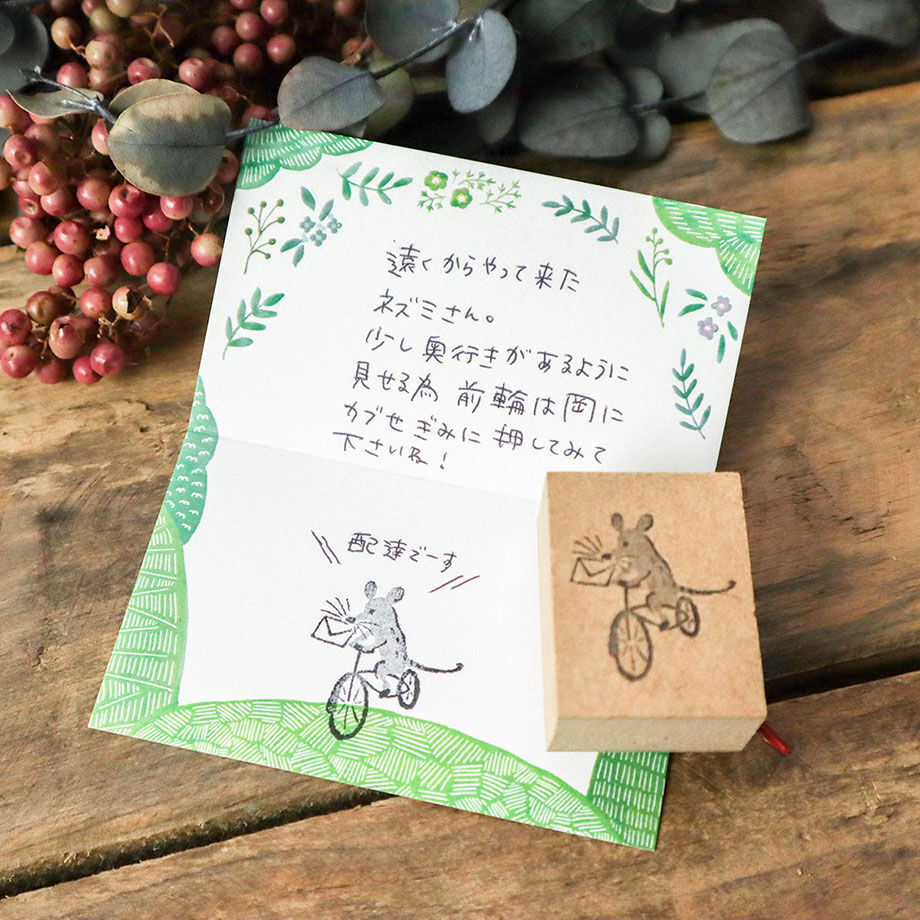 遠くからやって来た
ネズミさん。
少し奥行きがあるように
見せる為 前輪は岡に
カブせぎみに押してみて
下さいね!
配達でーす